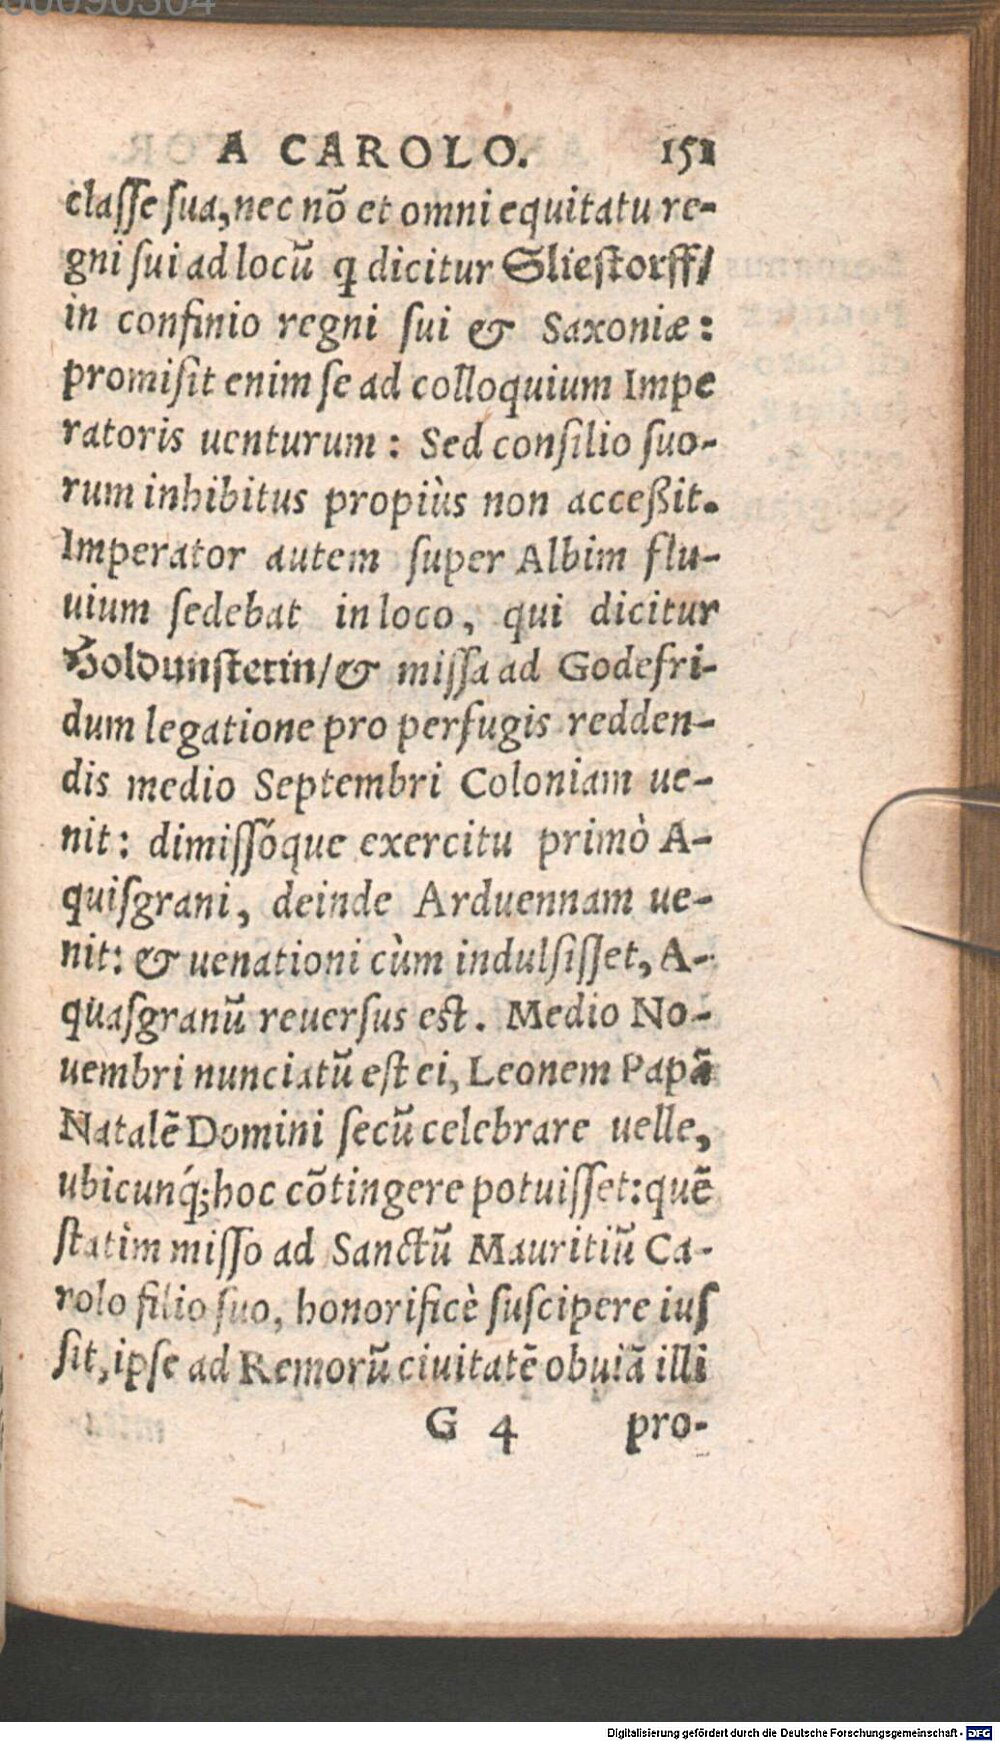 A CAROLO. 151
classe sua, nec nõ et omni equitatu re-
gni sui ad locũ q̃ dicitur Sliestorff/
in confinio regni sui & Saxoniæ:
promisit enim se ad colloquium Impe
ratoris uenturum: Sed consilio suo-
rum inhibitus propiùs non acceßit.
Imperator autem super Albim flu-
uium sedebat in loco, qui dicitur
Holdunstetin/& missa ad Godefri-
dum legatione pro perfugis redden-
dis medio Septembri Coloniam ue-
nit: dimissóque exercitu primò A-
quisgrani, deinde Arduennam ue-
nit: & uenationi cùm indulsisset, A-
quasgranũ reuersus est. Medio No-
uembri nunciatũ est ei, Leonem Papã
Natalẽ Domini secũ celebrare uelle,
ubicunq́; hoc cõtingere potuisset: quẽ
statìm misso ad Sanctũ Mauritiũ Ca-
rolo filio suo, honorificè suscipere ius
sit, ipse ad Remorũ ciuitatẽ obuiã illi
G 4 pro-
Digitalisierung gefördert durch die Deutsche Forschungsgemeinschaft - DFG